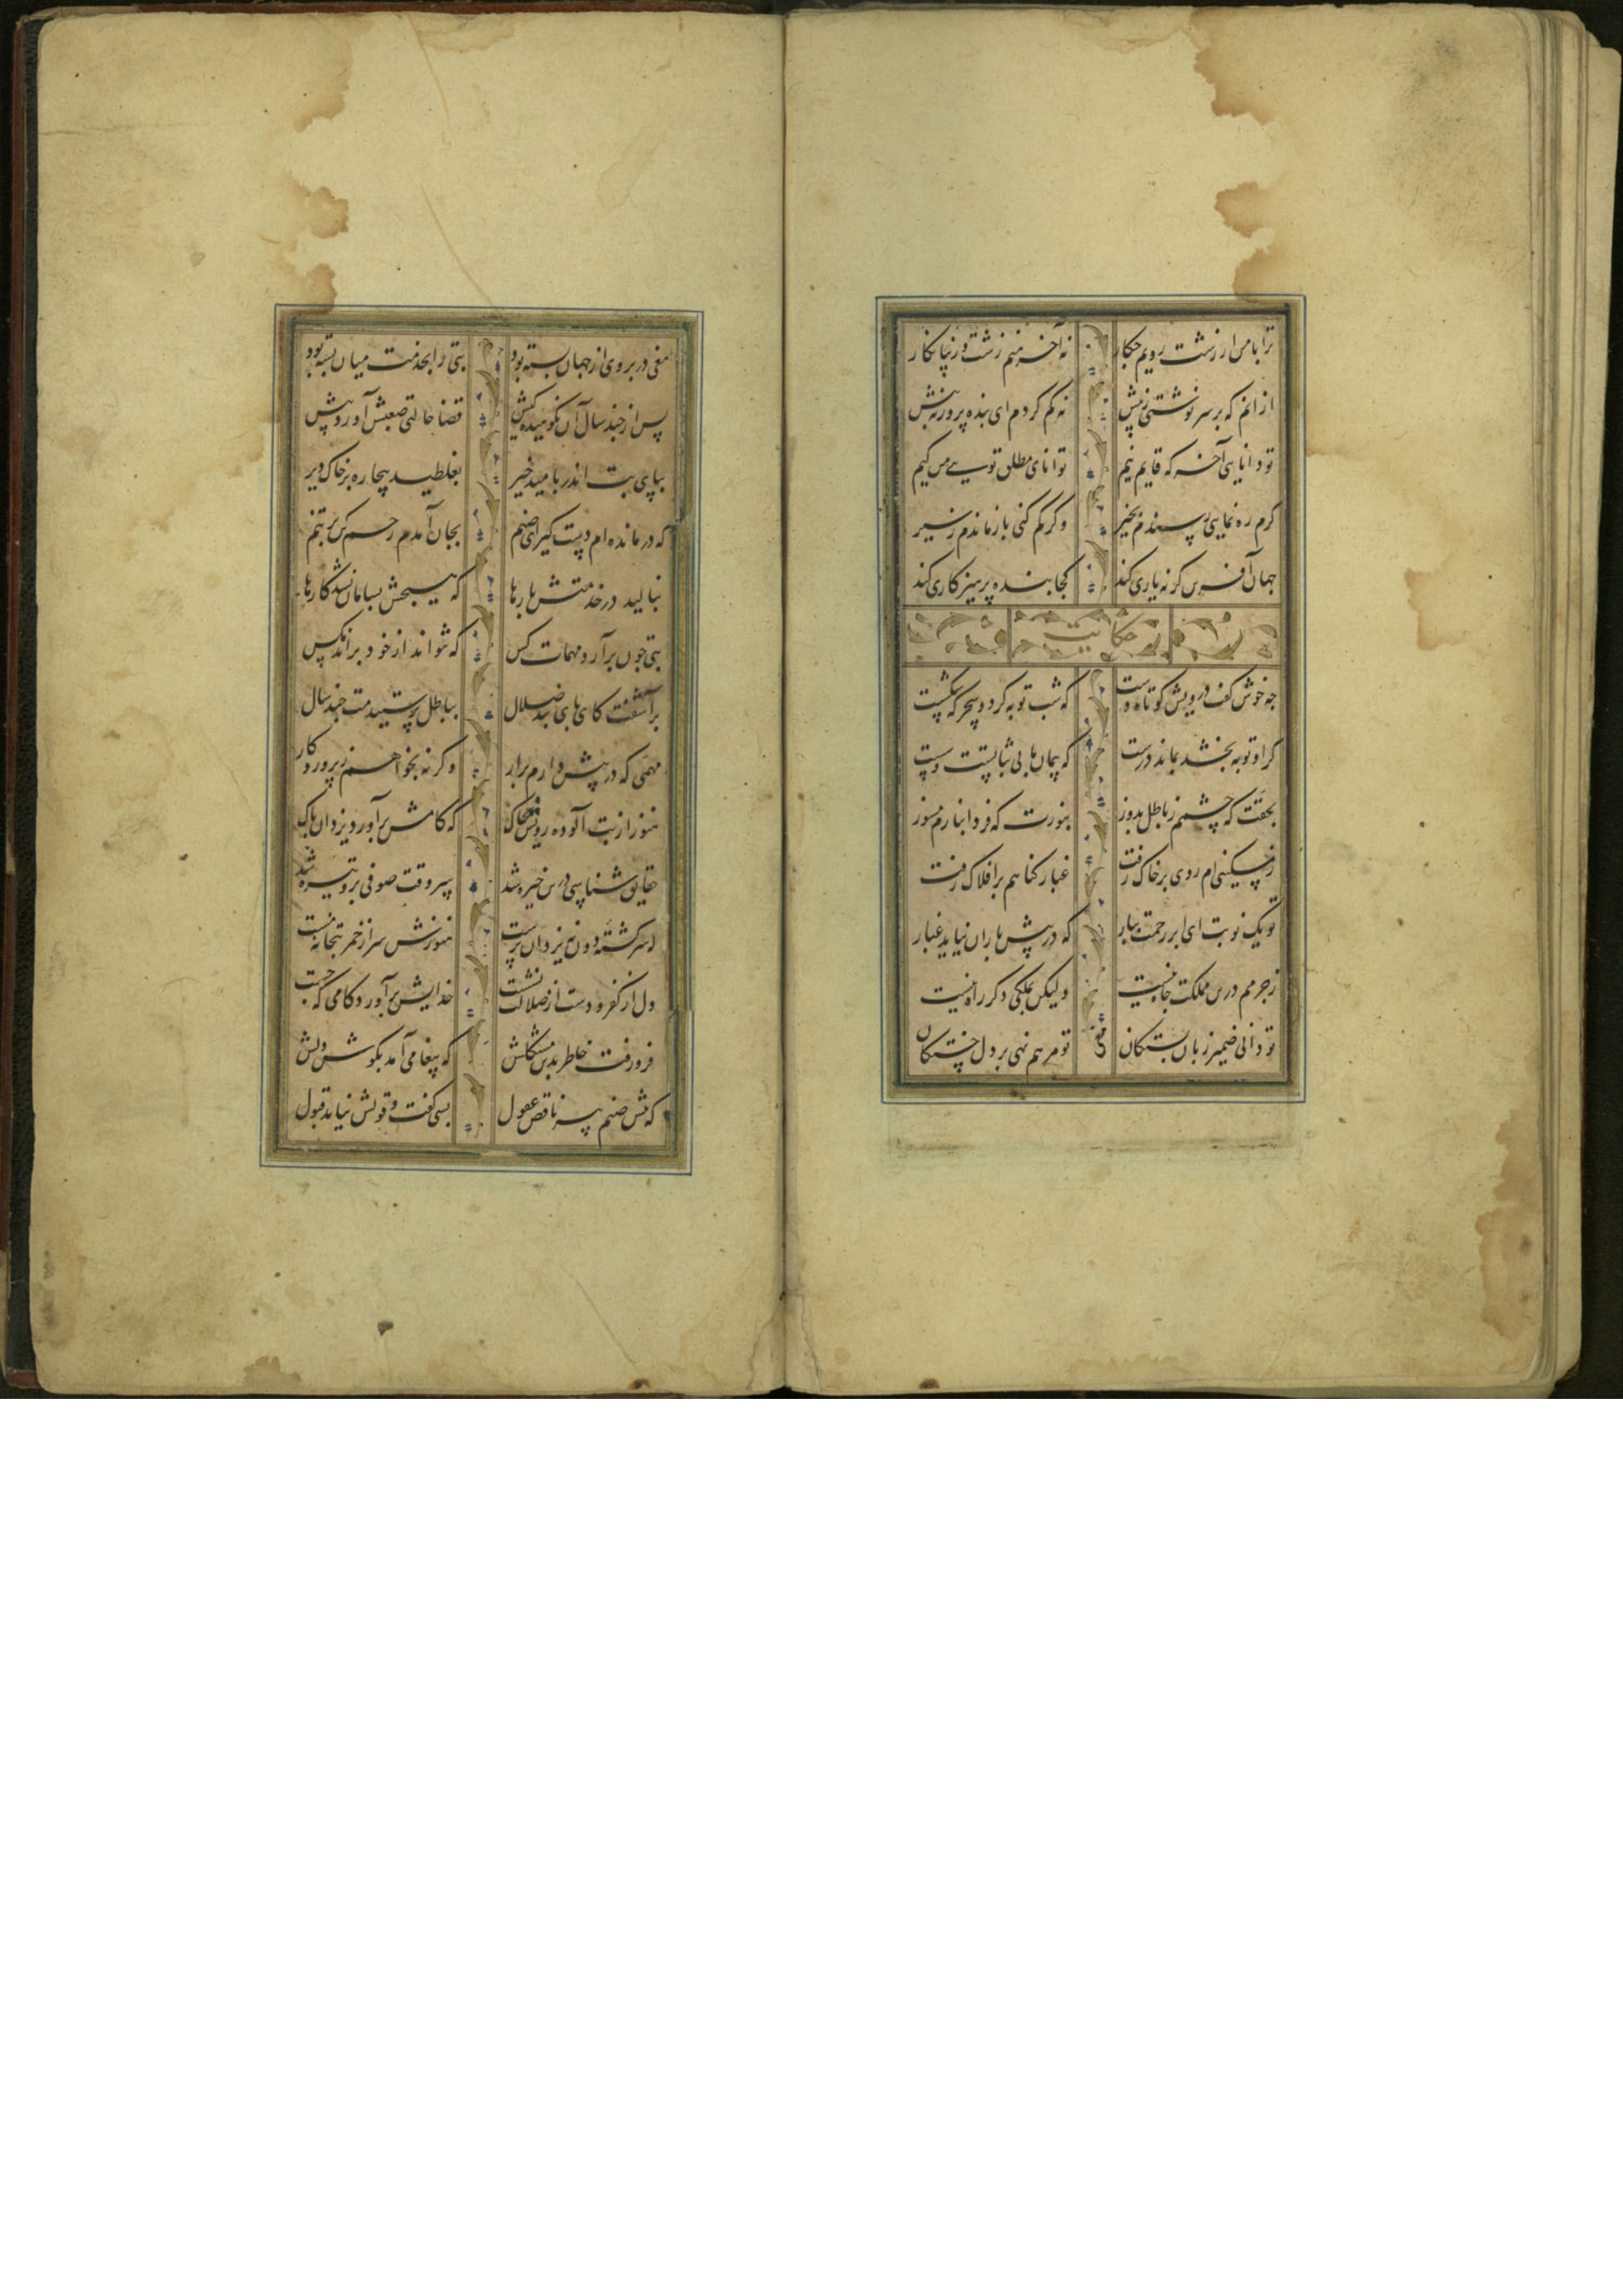 ترا با من ار زشت رویم چکار نه آخر منم زشت و زیبا نگار
از انم که بر سر نوشتی ز پیش نه کم کردم ای بنده پرور نه بیش
تو دانایی آخر که قایم نیم توانای مطلق تویی من کیم
کرم ره نمایی رسیدم بخیر و کر کم کنی باز ماندم ز سیر
جهان آفرین کر نه یاری کند کجا بنده پرهیزکاری کند
حکایت
چه خوش کفت درویش کوتاه دست که شب توبه کرد و سحرکه شکست
کر او توبه بخشد بماند درست که پیمان ما بی ثباتست و سست
بحقت که چشمم ز باطل بدوز بنورت که فردا بنارم مسوز
ز مسکینی ام روی بر خاک رفت غبار کناهم بر افلاک رفت
تو یک نوبت ای ابر رحمت ببار که در پیش باران نیاید غبار
ز جرمم درین مملکت جاه نیست ولیکن بملکی دکر راه نیست
تو دانی ضمیر زبان بستکان تو مرهم نهی بر دل خستکان
مغی
مغی در بروی از جهان بسته بود بتی را بخدمت میان بسته بود
پس از چند سال آن نکوهیده کیش قضا حالتی صعبش آورد پیش
بپای بت اندر بامید خیر بغلطید بیچاره بر خاک دیر
که درمانده ام دست کیر ای صنم بجان آمدم رحم کن بر تنم
بنالید در خدمتش بارها که هیچش بسامان نشد کارها
بتی چون برآرد مهمات کس که نتواند از خود براند مکس
برآشفت کای پای بند ضلال بباطل پرستیدمت چند سال
مهمی که در پیش دارم برار و کرنه بخواهم ز پروردکار
هنوز از بت آلوده رویش بخاک که کامش برآورد یزدان پاک
حقایق شناسی درین خیره شد سر وقت صوفی برو تیره شد
که سرکشته دون یزدان پرست هنوزش سر از خمر بتخانه مست
دل از کفر و دست از ضلالت نشست خدایش برآورد کامی که جست
فرو رفت خاطر بدین مشکلش که پیغامی آمد بکوش دلش
که پیش صنم پیر ناقص عقول بسی کفت و قولش نیامد قبول